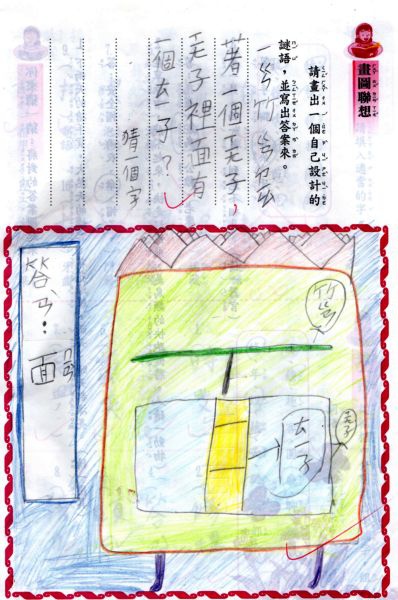 畫圖聯想
請畫出一個自己設計的
謎語,並寫出答案來。
一ㄍ竹
著一個 子,
子裡面有
一個ㄊㄧ子?
猜一個字
答ㄢˋ:面
竹
ㄊㄧ子
子